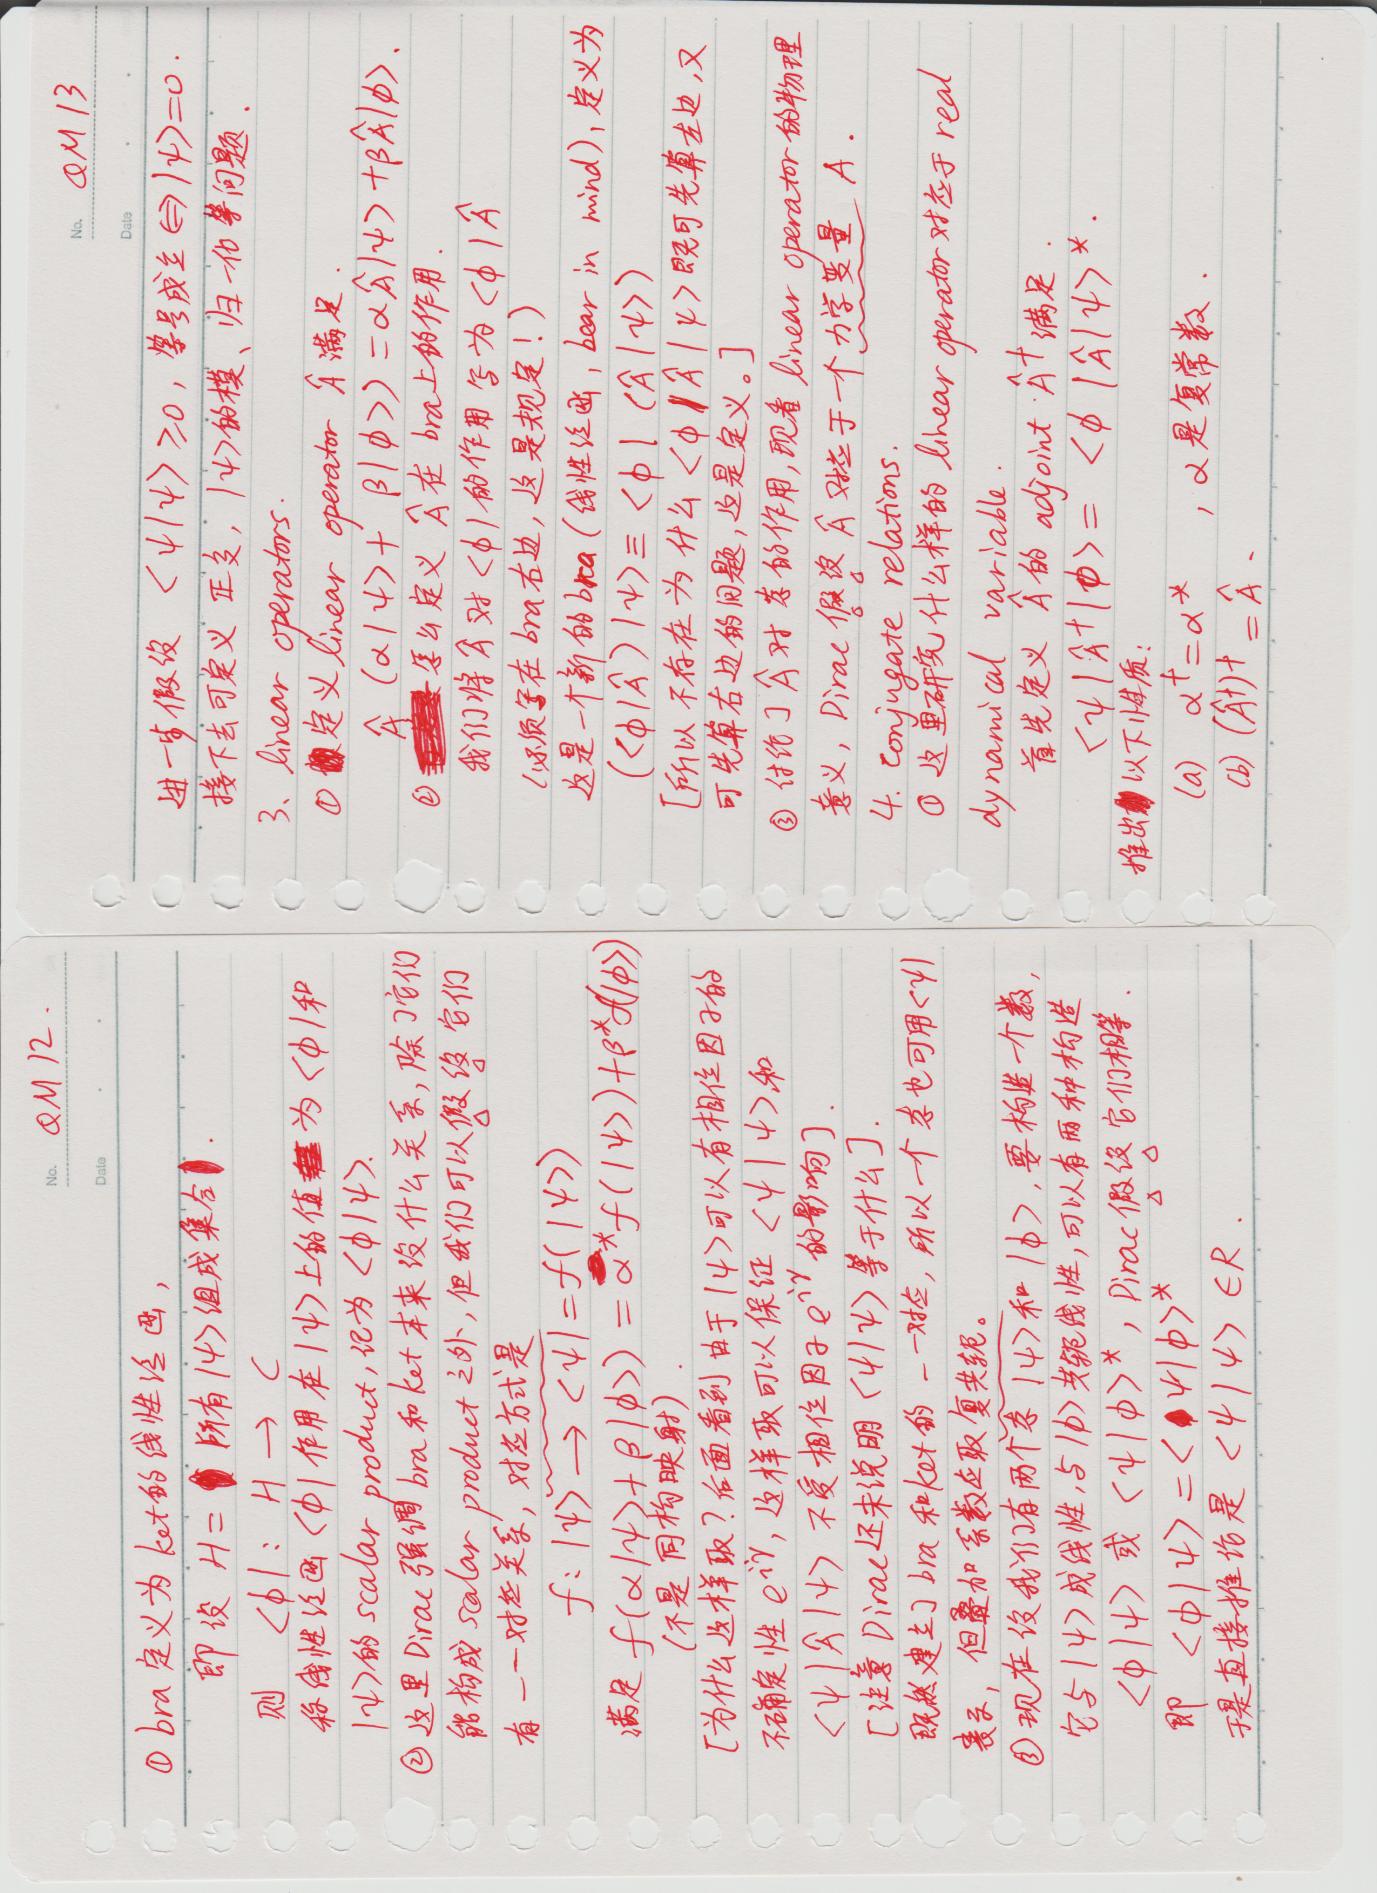 No. QM 12.
Date
① bra 定义为 ket的线性泛函,
即设 H= 所有|ψ>组成集合.
则 <ϕ|: H → C
称线性泛函<ϕ|作用在|ψ>上的值为<ϕ|和
|ψ>的 scalar product, 记为<ϕ|ψ>.
② 这里Dirac强调 bra 和ket本来没什么关系, 除了它们
能构成 scalar product 之外, 但我们可以假设它们
有一一对应关系, 对应方式是
f: |ψ> → <ψ| = f(|ψ>)
满足 f(α|ψ>+ β|ϕ>) = α*f(|ψ>)+β*f(|ϕ>)
(不是同构映射).
[为什么这样取? 后面看到由于|ψ>可以有相位因子的
不确定性 e^{iγ}, 这样取可以保证 <ψ|ψ>和
<ψ|Â|ψ> 不受相位因子e^{iγ}的影响].
[注意Dirac还未说明<ψ|ψ>等于什么].
既然建立了 bra 和ket的一一对应, 所以一个态也可用<ψ|
表示, 但叠加系数应取复共轭。
③ 现在设我们有两个态|ψ>和|ϕ>, 要构造一个数,
它与|ψ>成线性, 与|ϕ>共轭线性, 可以有两种构造
<ϕ|ψ> 或 <ψ|ϕ>*, Dirac假设它们相等.
即 <ϕ|ψ> = <ψ|ϕ>*
于是直接推论是 <ψ|ψ> ∈R.
No. QM 13
Date
进一步假设 <ψ|ψ> ≥0, 等号成立⇔|ψ>=0.
接下去可定义 正交, |ψ>的模、归一化等问题.
3、linear operators.
① 定义 linear operator Â 满足.
Â (α|ψ>+ β|ϕ>) = αÂ|ψ> +βÂ|ϕ>.
② 怎么定义 Â 在 bra上的作用.
我们将 Â 对<ϕ|的作用写为<ϕ|Â
(必须写在 bra右边, 这是规定!)
这是一个新的bra (线性泛函, bear in mind), 定义为
(<ϕ|Â)|ψ> ≡ <ϕ| (Â|ψ>)
[所以不存在为什么<ϕ|Â|ψ>既可先算左边, 又
可先算右边的问题, 这是定义。]
③ 讨论了Â对态的作用, 现看 linear operator的物理
意义, Dirac 假设 Â 对应于一个力学变量 A.
4. conjugate relations.
① 这里研究什么样的 linear operator对应于real
dynamical variable.
首先定义 Â 的 adjoint Â† 满足.
<ψ|Â†|ϕ> = <ϕ|Â|ψ>*.
推出以下性质:
(a) α†=α* , α是复常数.
(b) (Â†)† = Â.